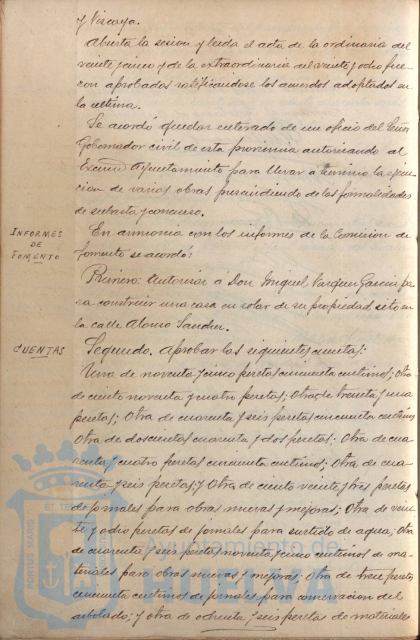 y Viscaya.
Abierta la sesion y leida el acta de la ordinaria del
veinte y cinco y de la extraordinaria del veinte y ocho fue-
ron aprobadas ratificandose los acuerdos adoptados en
la última.
Se acordó quedar enterado de un oficio del Señor
Gobernador civil de esta provincia autorizando al
Excmo Ayuntamiento para llevar a termino la ejecu-
cion de varias obras prescindiendo de las formalidades
de subasta y concurso.
INFORMES
DE
FOMENTO
En armonia con los informes de la Comision de
fomento se acordó:
Primero: Autorizar á Don Miguel Vazquez Garcia pa-
ra construir una casa en solar de su propiedad sito en
la calle Alonso Sanchez.
CUENTAS
Segundo. Aprobar las siguientes cuentas:
Una de noventa y cinco pesetas cincuenta centimos; Otra
de ciento noventa y cuatro pesetas; Otra de treinta y una
pesetas; Otra de cuarenta y seis pesetas cincuenta centimos
Otra de doscientas cuarenta y dos pesetas; Otra de cua-
renta y cuatro pesetas cincuenta centimos; Otra de cua-
renta y seis pesetas; y Otra de ciento veinte y tres pesetas
de jornales para obras nuevas y mejoras; Otra de vein-
te y ocho pesetas de jornales para surtido de agua; Otra
de cuarenta y seis pesetas noventa y cinco centimos de ma-
teriales para obras nuevas y mejoras; Otra de trece pesetas
cincuenta centimos de jornales para conservacion del
arbolado; y otra de ochenta y seis pesetas de materiales
PORTUS MARIS
ET TERRAE
Ayuntamiento de
HUELVA